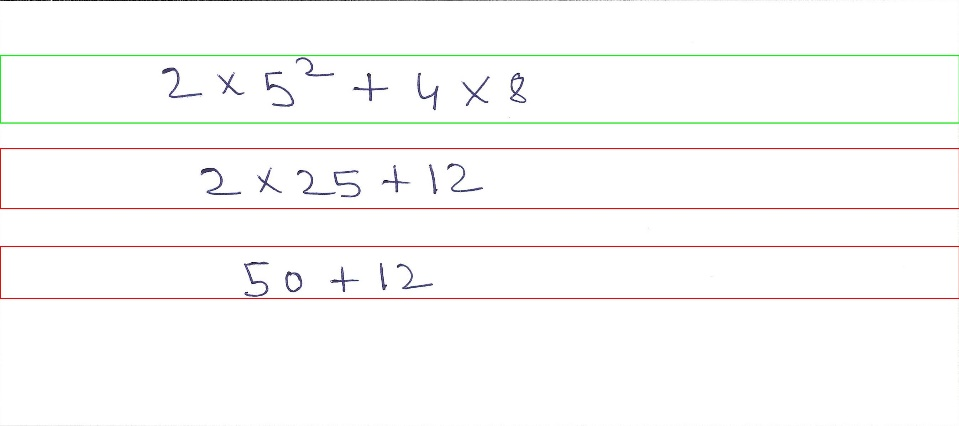 2 × 5² + 4 × 8
2 × 25 + 12
50 + 12